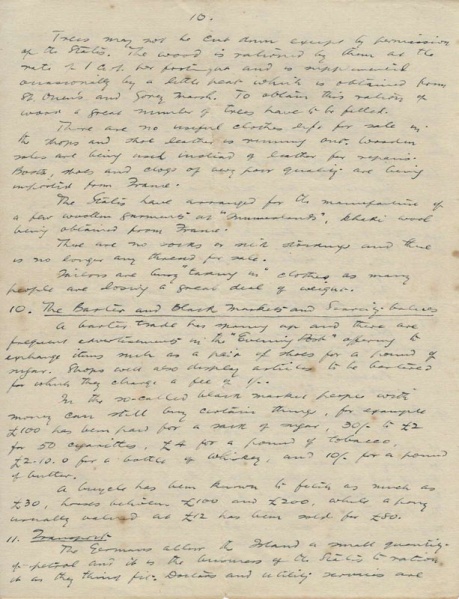 10.
Trees may not be cut down except by permission
of the States. The wood is rationed by them at the
rate of 1 cwt. per fortnight and is supplemented
occasionally by a little peat which is obtained from
St. Ouen's and Gorey Marsh. To obtain this ration of
wood a great number of trees have to be felled.
There are no useful clothes left for sale in
the shops and shoe leather is running out. Wooden
soles are being used instead of leather for repairs.
Boots, shoes and clogs of very poor quality are being
imported from France.
The States have arranged for the manufacture of
a few woollen garments at "Summerland", khaki wool
being obtained from France.
There are no socks or silk stockings and there
is no longer any thread for sale.
Tailors are busy "taking in" clothes as many
people are losing a great deal of weight.
10. The Barter and Black Markets and Scarcity Values
A barter trade has sprung up and there are
frequent advertisements in the "Evening Post" offering to
exchange items such as a pair of shoes for a pound of
sugar. Shops will also display articles to be bartered
for which they charge a fee of 1/-.
In the so-called black market people with
money can still buy certain things, for example
£100 has been paid for a sack of sugar, 30/- to £2
for 50 cigarettes, £4 for a pound of tobacco,
£2-10.0 for a bottle of whiskey, and 10/- for a pound
of butter.
A bicycle has been known to fetch as much as
£30, horses between £100 and £200, while a pony
usually valued at £12 has been sold for £80.
11. Transport
The Germans allow the Island a small quantity
of petrol and it is the business of the States to ration
it as they think fit. Doctors and utility services are